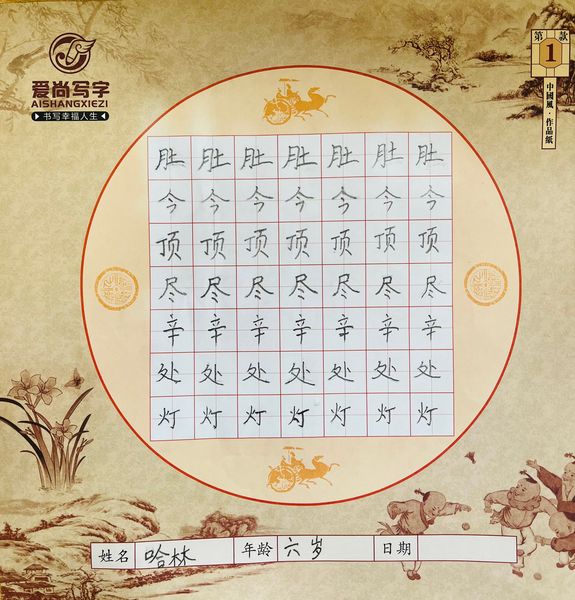 爱尚写字
AISHANGXIEZI
书写幸福人生
第1款
中國風·作品紙
肚肚肚肚肚肚肚
今今今今今今今
顶顶顶顶顶顶顶
尽尽尽尽尽尽尽
辛辛辛辛辛辛辛
处处处处处处处
灯灯灯灯灯灯灯
姓名 哈林 年龄 六岁 日期